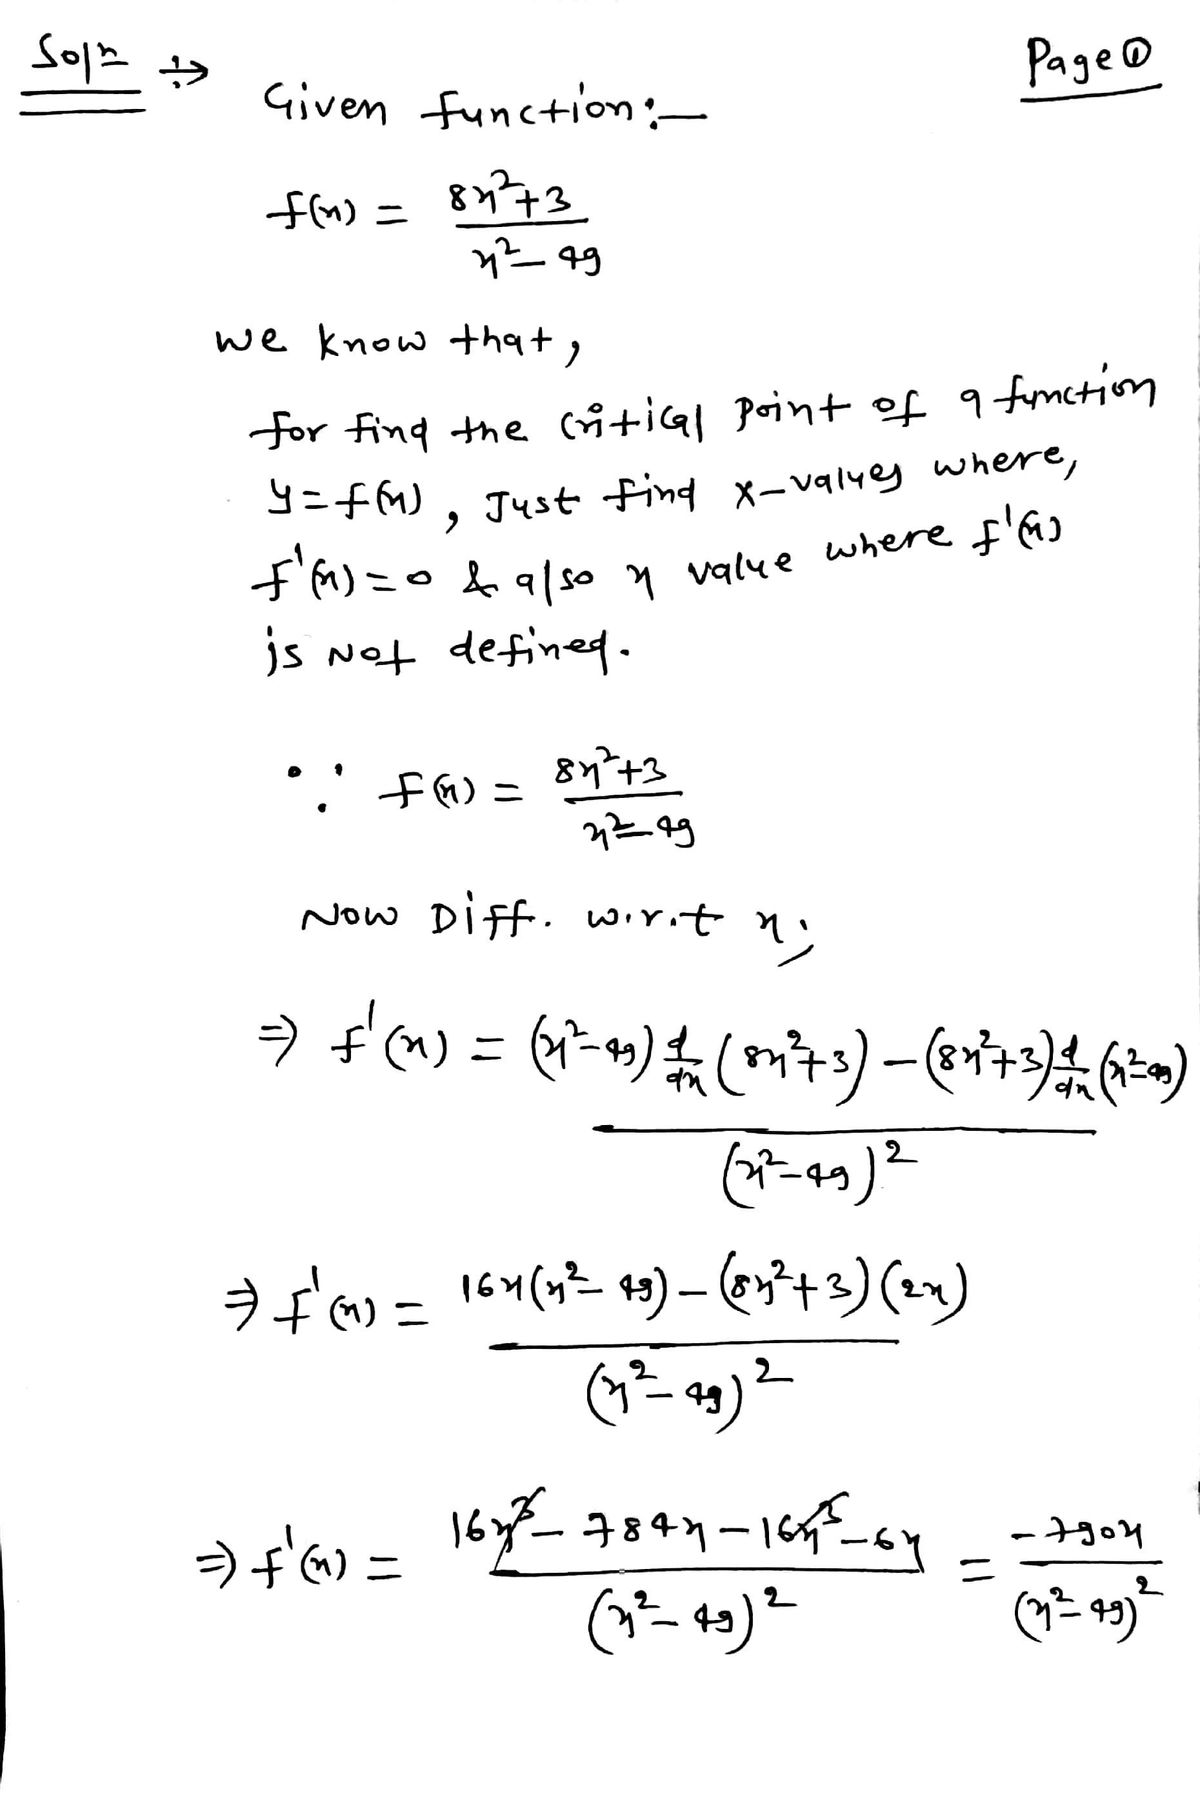 Solⁿ ÷→ Page ①
Given function:—
f(x) = (8x²+3)/(x²-49)
we know that,
for find the critical point of a function
y=f(x), Just find x-values where,
f'(x)=0 & also x value where f'(x)
is Not defined.
∵ f(x) = (8x²+3)/(x²-49)
Now Diff. w.r.t x;
⇒ f'(x) = ((x²-49) d/dx (8x²+3) - (8x²+3) d/dx (x²-49))/(x²-49)²
⇒ f'(x) = (16x(x²-49) - (8x²+3)(2x))/(x²-49)²
⇒ f'(x) = (16x³ - 784x - 16x³ - 6x)/(x²-49)² = -790x/(x²-49)²